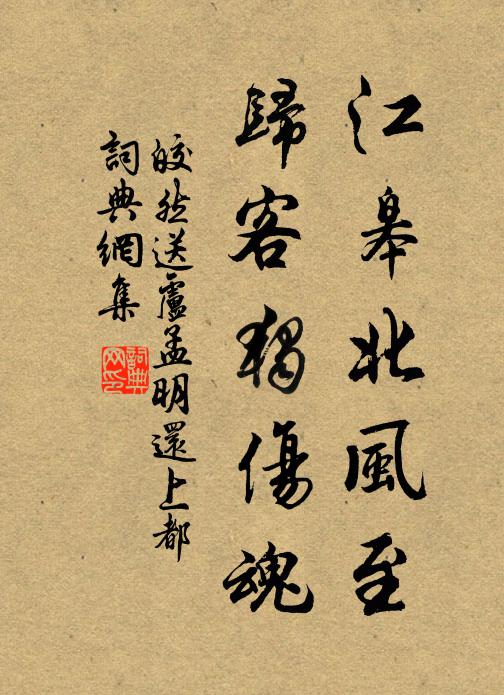 江皋北風至
歸客獨傷魂
皎然送盧孟明還上都
詞典網集
詞典網印